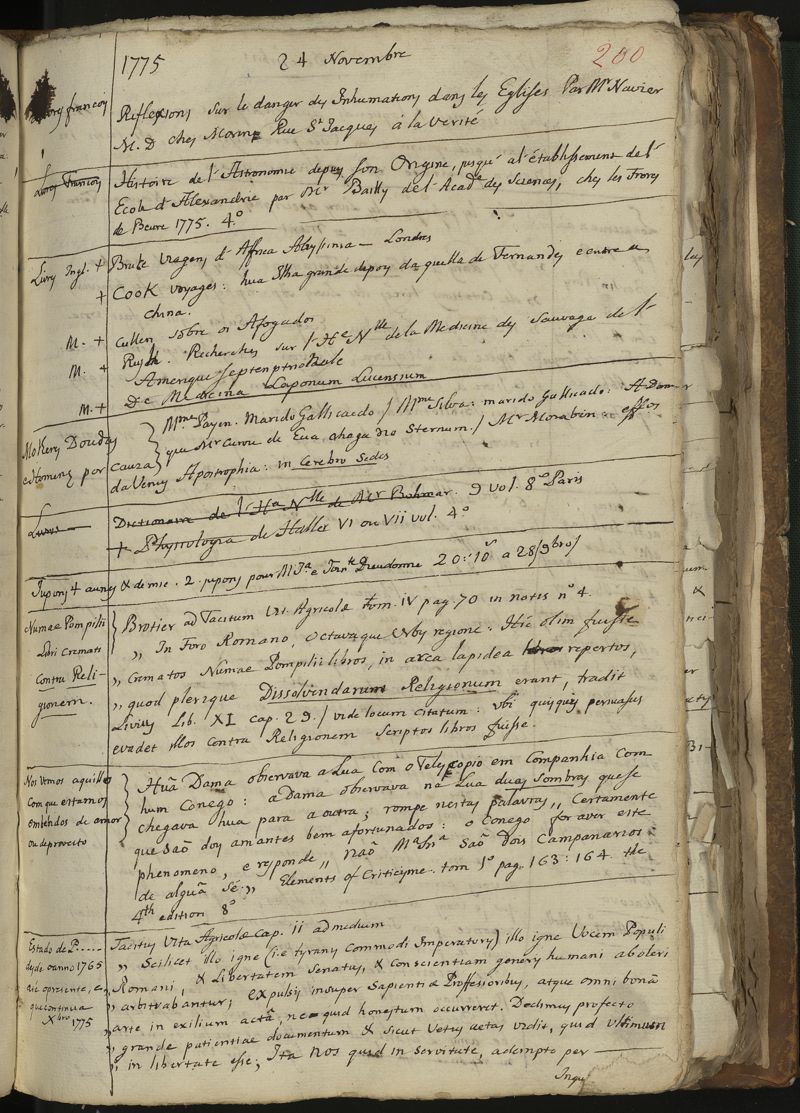 1775 24 Novembre 200
Livres françois
Reflexions sur le danger des Inhumations dans les Eglises Par Mr Navier
M. D chez Morin Rue St Jacques á la Verité
Livres François
Histoire de l'Astronomie depuis son Origine, jusqué a l'établissement de l'
Ecole d'Alexandrie par Mr Bailly de l'Acad. des Sciences, chez les Freres
de Beure 1775. 4.º
Livres Ingl. + Bruke viagens d'Affrica Abyssinia — Londres
+ Cook voyages: hua Ilha grande depois da quella de Fernandes entre a
china.
M. + Cullen sobre os Afogados
M. + Rush. Recherches sur l'He Nlle de la Medicine des Sauvages de l'
Amerique septentrionale
M. + De Medicina Laponum Lucensium
Molheres Doudas
e Homens por
Cauza
Mme Payen. Marido Gallicado / Mme Silva: marido Gallicado:
que Mr Curou de Eua chaga do Sternum. / Mr Morabin: effos
da Venus Apostrophia: in Cerebro Sedes
Livros
Dictionaire de l'Ha Nlle de Mr Bohmar. 9 vol. 8º Paris
+ Physiologia de Haller VI ou VII vol. 4º
Jupons 4 aunes & demie. 2. jupons pour
Numae Pompilii
Libri Cremati
Contra Reli-
gionem.
Brotier ad Tacitum Vit. Agricolæ tom. IV pag. 70 in notis nº 4.
„ In Foro Romano, octavaque Urbis regione: Hic olim fuisse
„ Crematos Numae Pompilii libros, in area lapidea repertos,
„ quod plerique Dissolvendarum Religionum erant, tradit
Livius Lib. XI cap. 29. / vide locum citatum: ubi quisquis persuasus
evadet illos contra Religionem scriptos libros fuisse.
Nos vemos aquillo
com que estamos
embebidos de amor
ou de proveito
Hũa Dama observava a Lua com o Telescopio em Companhia com
hum Conego: a Dama observava na Lua duas sombras que se
chegava hua para a outra; rompe nestas palavras „ Certamente
que saõ dois amantes bem afortunados: o Conego for aver este
phenomeno, e responde „ Naõ Ma Snra Saõ dois Campanarios
de alguã Sé: „ Elements of Criticisme. tom 1º pag. 163: 164. the
4th edition 8º
Estado de P.....
desde o anno 1765
que continua
Xbro 1775
Tacitus Vita Agricolæ cap. ii ad medium
„ Scilicet illo igne (i.e tyrany commodi Imperatorys) illo igne Vocem Populi
„ Romani, & Libertatem Senatus, & conscientiam generis humani aboleri
„ arbitrabantur; expulsis insuper Sapientiæ Professoribus, atque omni bonâ
„ arte in exilium actâ, ne quid honestum occurreret. Dedimus profecto
„ grande patientiae documentum & sicut Vetus aetas vidit, quid ultimum
„ in libertate esse; Ita Nos quid in servitute, adempto per
Inqui